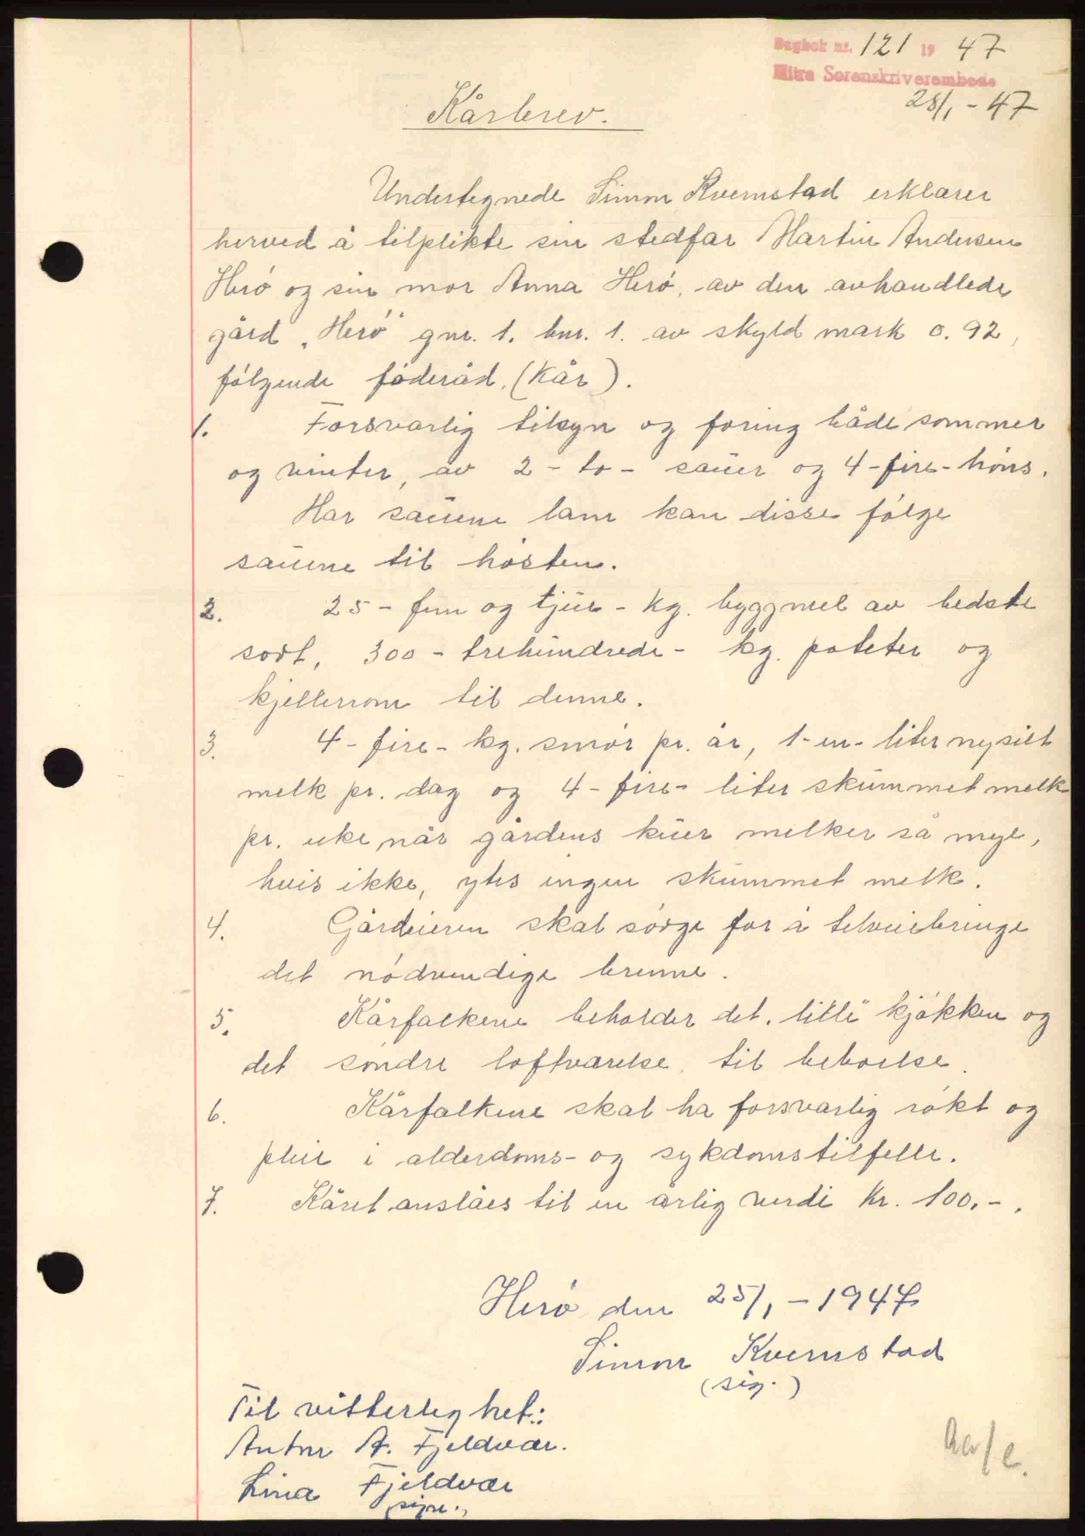 Dagbok nr. 121 19 47
Hitra Sorenskriverembede
28/1 - 47
Kårbrev.
Undertegnede Simon Kvernstad erklærer
herved å tilplikte sin stedfar Martin Andersen
Herø og sin mor Anna Herø, av den avhandlede
gård "Herø" gnr. 1. bnr. 1. av skyld mark 0.92,
følgende føderåd. (Kår).
1. Forsvarlig tilsyn og foring både sommer
og vinter, av 2 - to - sauer og 4 - fire - høns.
Har sauene lam kan disse følge
sauene til høsten.
2. 25 - fem og tjue - kg. byggmel av bedste
sort, 300 - trehundrede - kg. poteter og
kjellerrom til denne.
3. 4 - fire - kg. smør pr. år, 1 - en - liter nysilt
melk pr. dag og 4 - fire - liter skummet melk
pr. uke når gårdens kuer melker så mye,
hvis ikke, ytes ingen skummet melk.
4. Gårdeieren skal sørge for å tilveiebringe
det nødvendige brenne.
5. Kårfolkene beholder det lille kjøkken og
det søndre loftværelse til beboelse.
6. Kårfolkene skal ha forsvarlig røkt og
pleie i alderdoms- og sykdomstilfelle.
7. Kåret anslåes til en årlig verdi Kr. 100,-.
Herø den 25/1 - 1947
Simon Kvernstad
(sig.)
Til vitterlighet:
Anton A. Fjeldvær.
Lina Fjeldvær
(sign.)